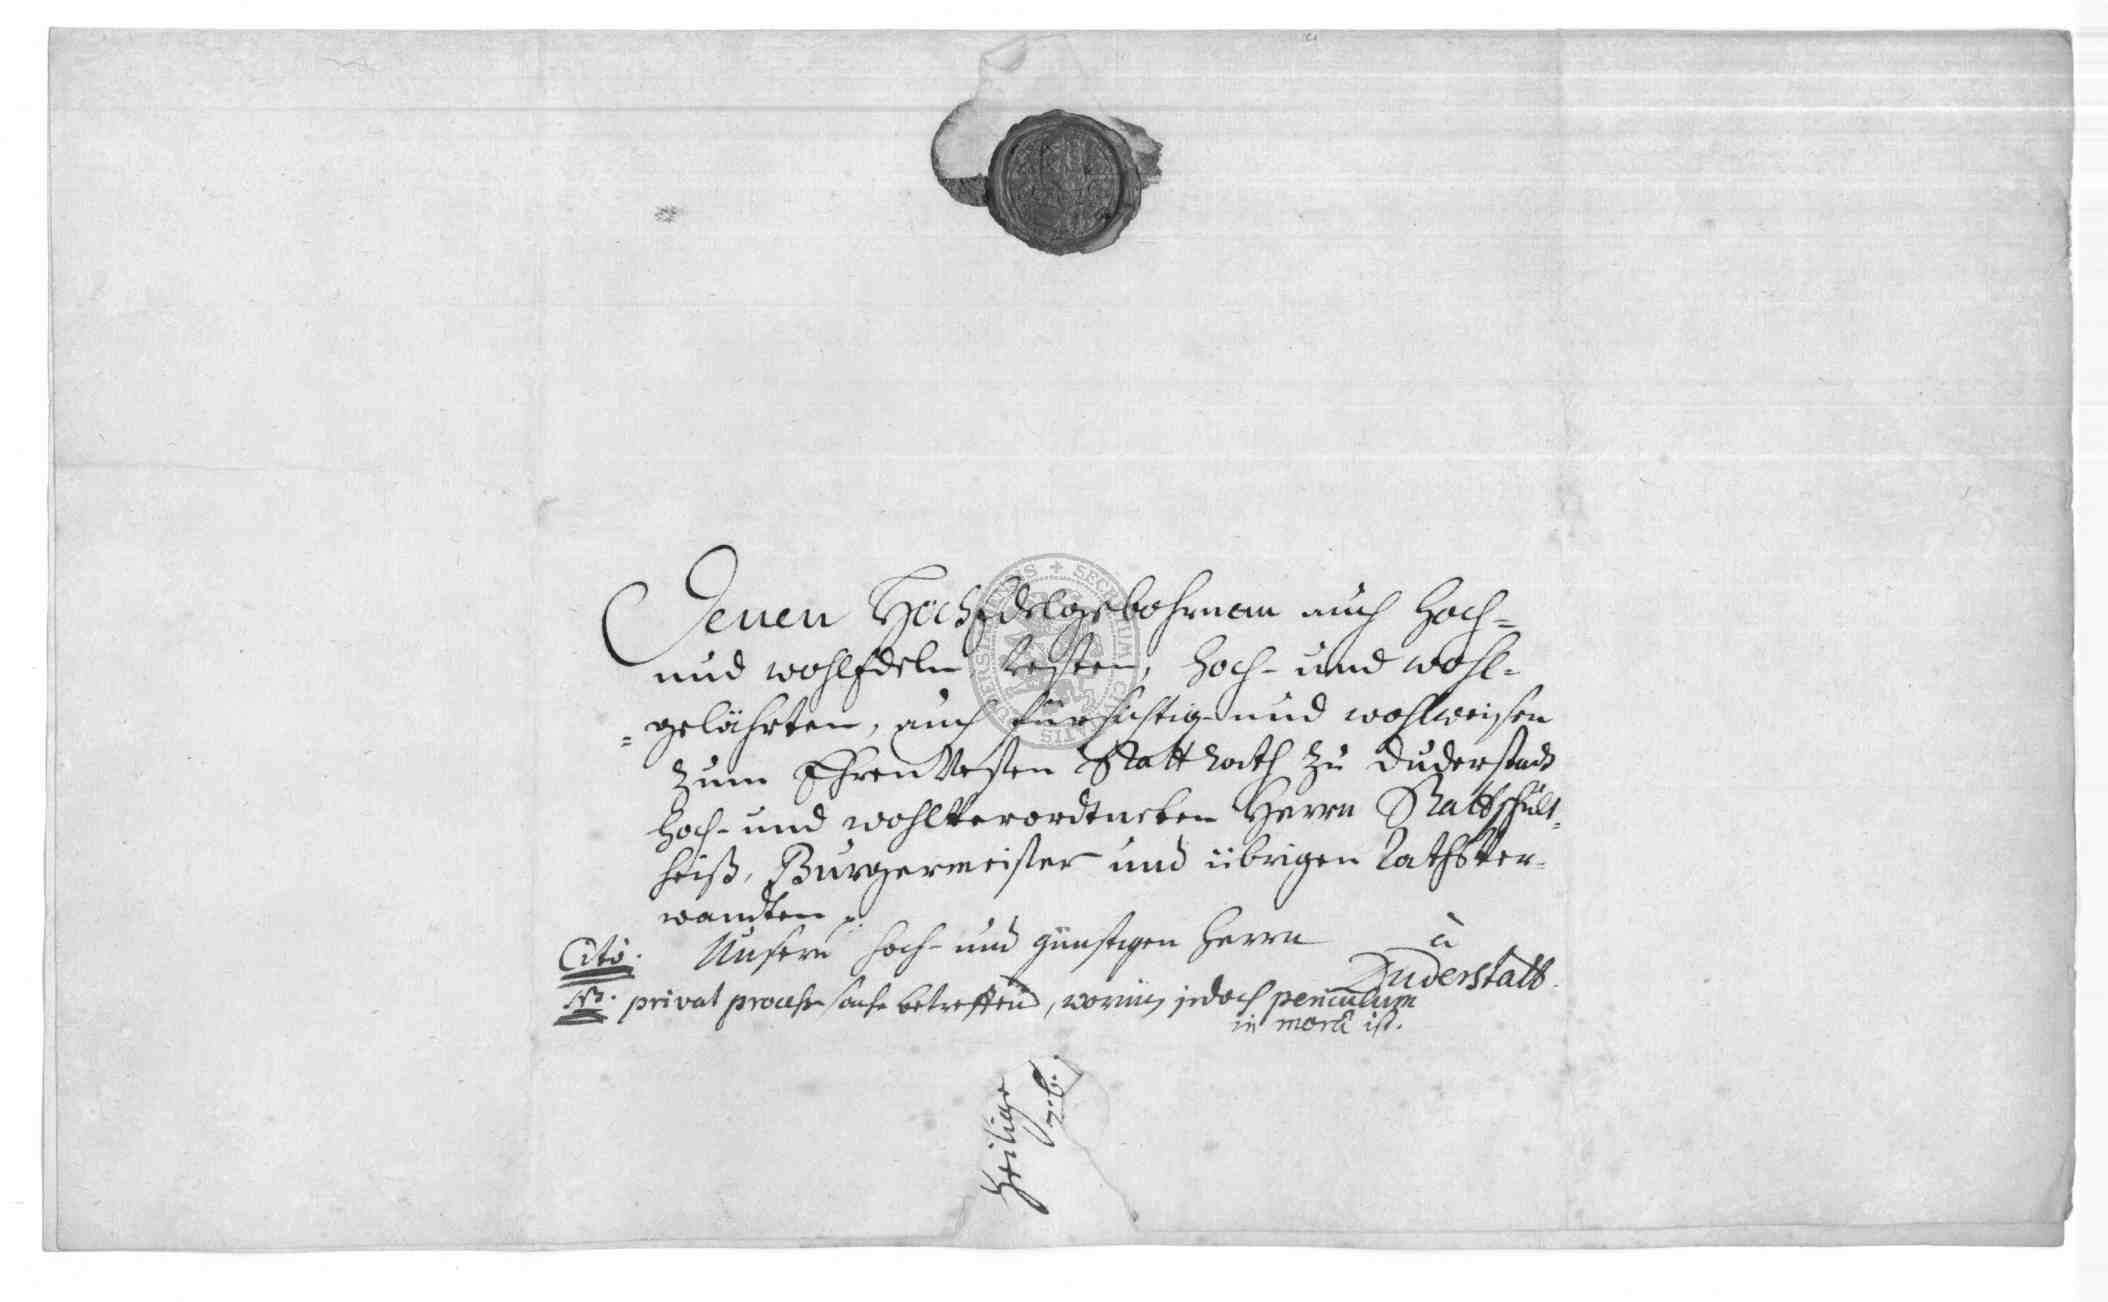 Denen HochEdelgebohrnen auch Hoch-
und wohlEdeln Vesten, Hoch- und wohl-
=gelährten, auch fürsichtig und wohlweisen
zum EhrenVesten Statt rath zu Duderstadt
Hoch- und wohlverordtneten Herrn Stattschult-
heiß, Burgermeister und übrigen Rathsver-
wandten
Citò. Unsern hoch- und günstigen Herrn à
Duderstatt.
NB. privat process sache betreffend, worin jedoch periculum
in morâ ist.
Heilige